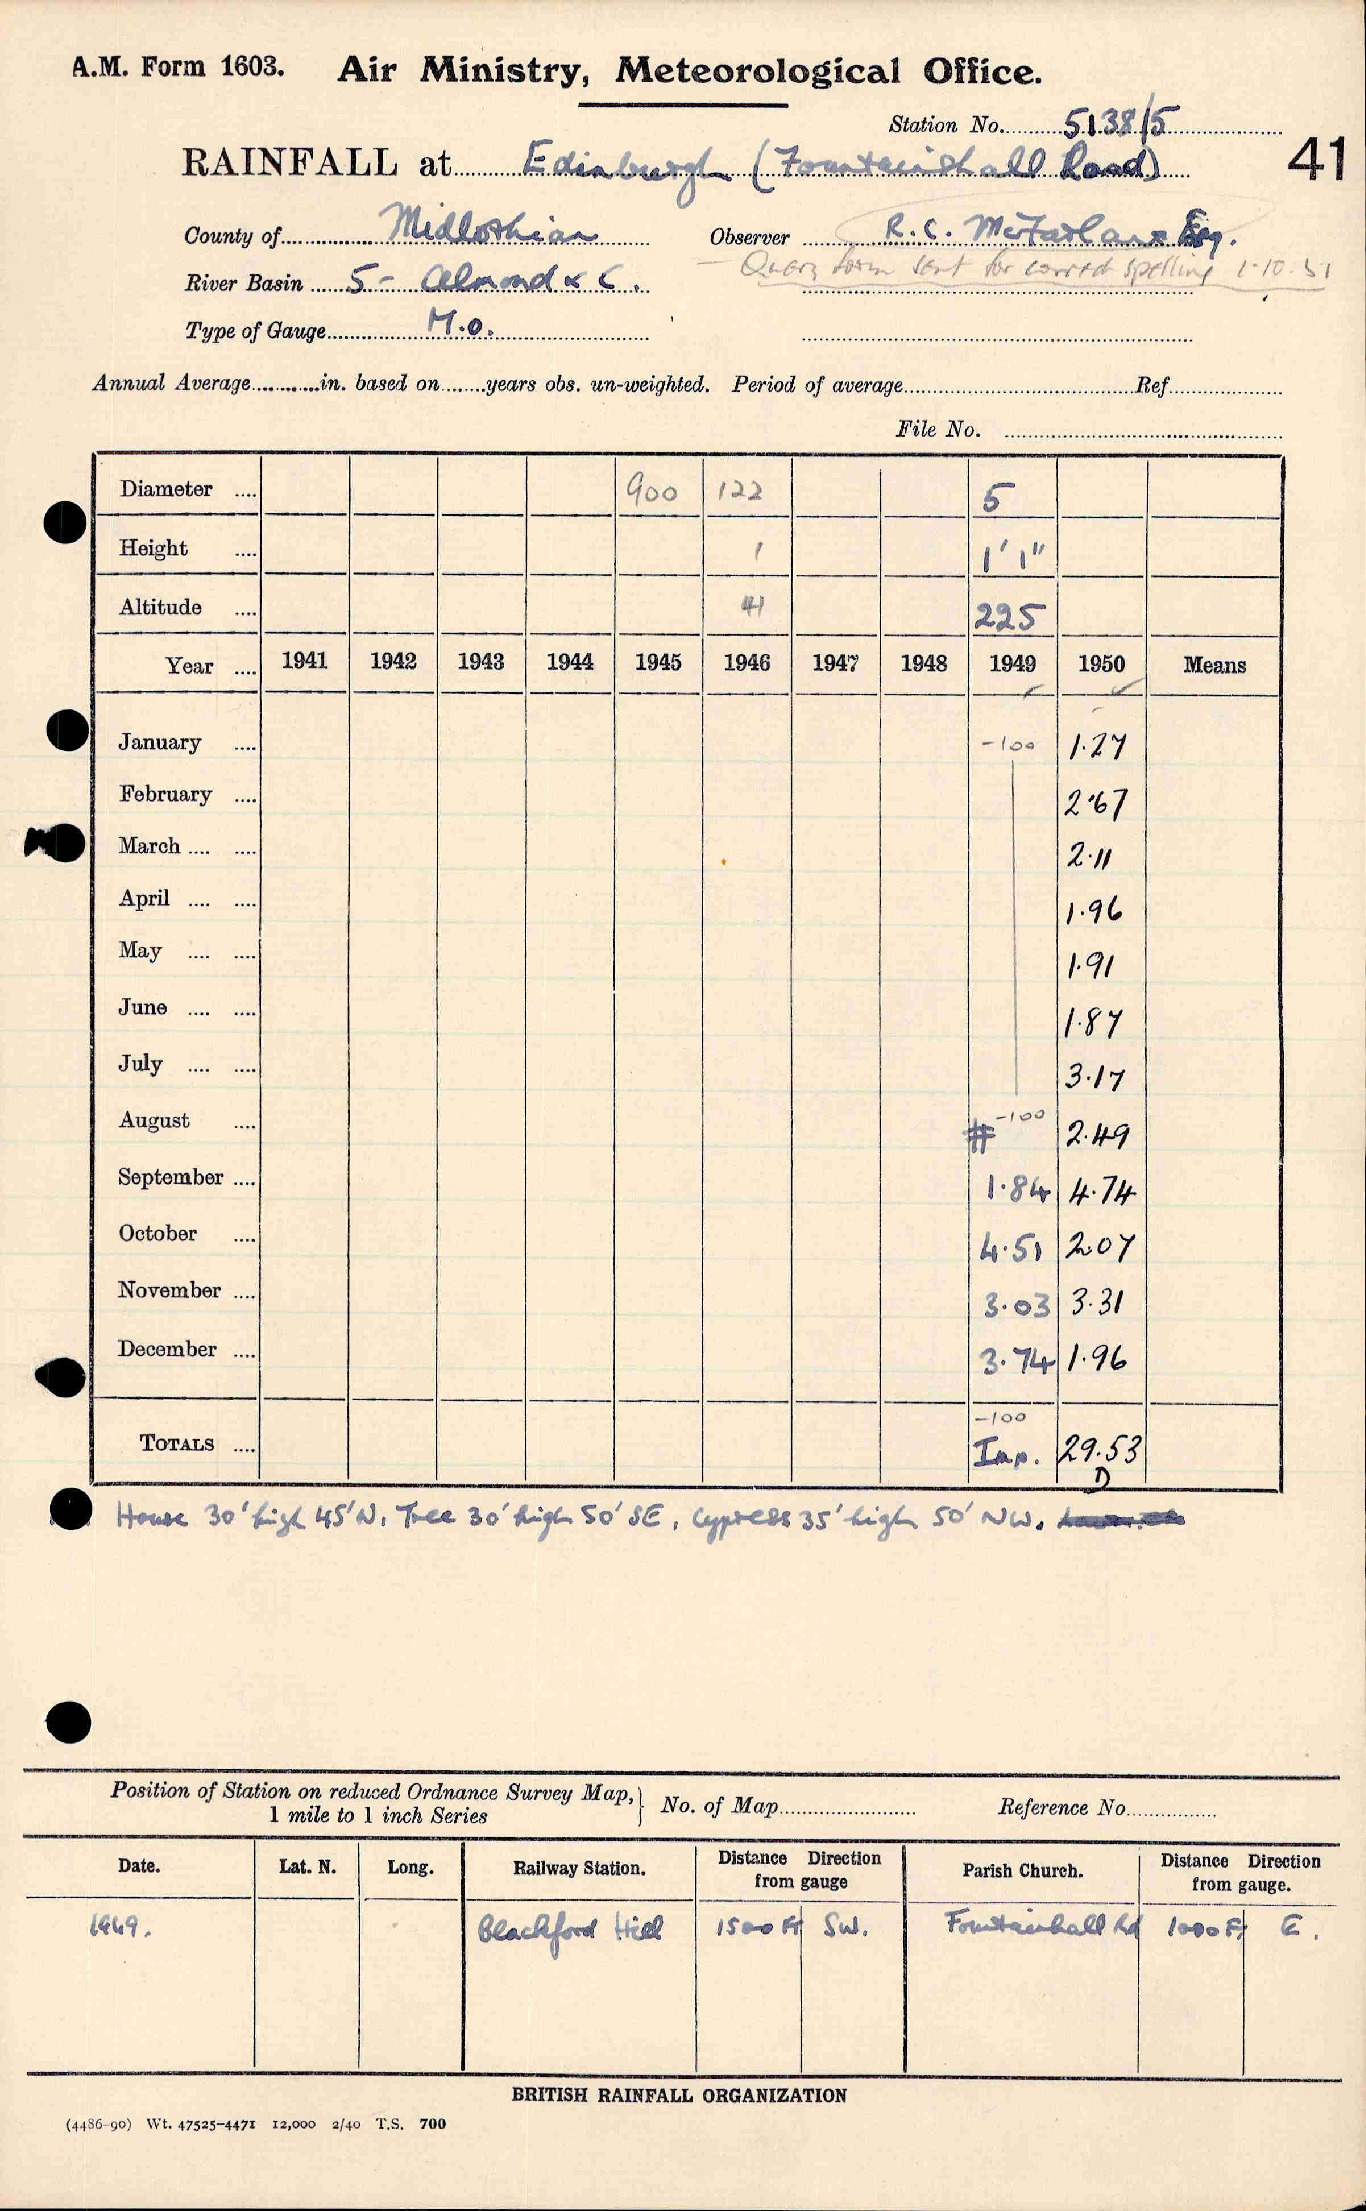 A.M. Form 1603. Air Ministry, Meteorological Office.
Station No. 5138/5
41
RAINFALL at Edinburgh (Fountainhall Road)
County of Midlothian Observer R. C. McFarlane Esq.
— Query form sent for correct spelling 1.10.51
River Basin 5 - Almond & C.
Type of Gauge M.O.
Annual Average in. based on years obs. un-weighted. Period of average Ref
File No.
Diameter 900 122 5
Height 1 1' 1"
Altitude 41 225
Year 1941 1942 1943 1944 1945 1946 1947 1948 1949 1950 Means
January -100 1.27
February 2.67
March 2.11
April 1.96
May 1.91
June 1.87
July 3.17
August # -100 2.49
September 1.84 4.74
October 4.51 2.07
November 3.03 3.31
December 3.74 1.96
-100
TOTALS Inp. 29.53
D
House 30' high 45' N, Tree 30' high 50' SE, Cypress 35' high 50' NW.
Position of Station on reduced Ordnance Survey Map, 1 mile to 1 inch Series } No. of Map Reference No.
Date. Lat. N. Long. Railway Station. Distance Direction from gauge Parish Church. Distance Direction from gauge.
1949. Blackford Hill 1500 Ft SW. Fountainhall Rd 1000 Ft E.
BRITISH RAINFALL ORGANIZATION
(4486-90) Wt. 47525-4471 12,000 2/40 T.S. 700